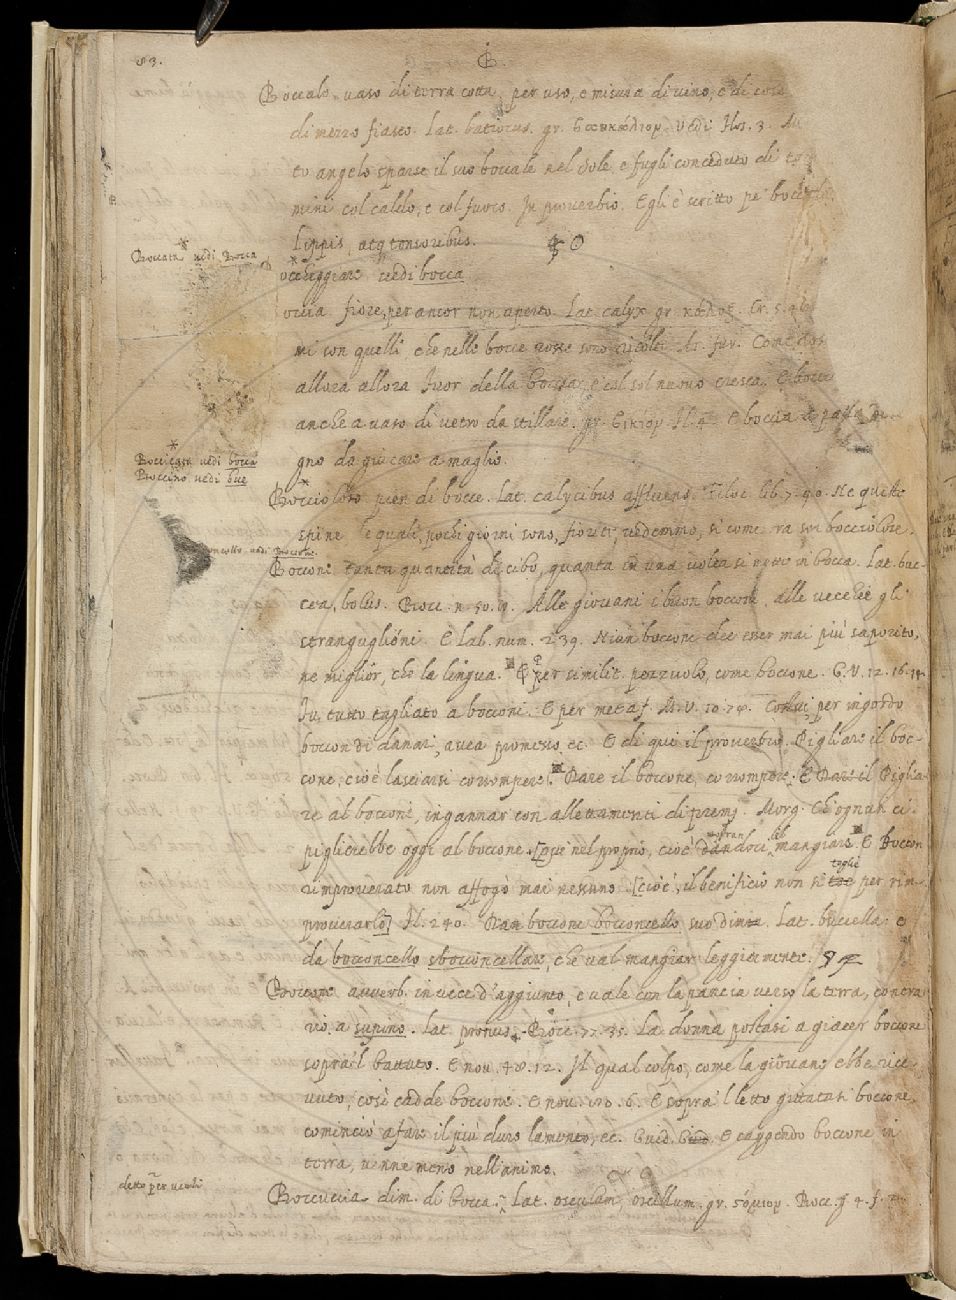 83.
B.
Boccale. vaso di terra cotta, per uso, e misura di vino, e di cose
di mezzo fiasco. Lat. batiocus. gr. vedi Flos. 3.
to angelo sparse il suo boccale nel sole, e fugli conceduto di
mini col caldo, e col fuoco. In proverbio. Egli è scritto pe' boccali
Lippis, atq tonsoribus.
Boccata vedi Bocca
occheggiare vedi bocca
occia fiore, per ancor non aperto. Lat. calyx gr. Cr. 5.
mi son quelli, che nelle bocce rosse sono Ar. fur. Come
allora allora fuor della boccia, e col sol nuovo cresca. E boccia
anche a vaso di vetro da stillare. gr. E boccia e palla di
gno da giucare a maglio.
Boccicata vedi bocca
Boccino vedi bue
Boccioloso pien di bocce. Lat. calycibus affluens. Filoc. lib. 7. 40. Ne queste
spine le quali, pochi giorni sono, fiorite vedemmo, si come ra son bocciolose.
concello vedi Boccone.
Boccone tanta quantità di cibo, quanta in una volta si mette in bocca. Lat. buc-
cea, bolus. Bocc. n. 50. 19. Alle giovani i buon bocconi, alle vecchie gli
stranguglióni. E Lab. num. 239. Niun boccone dee esser mai più saporito,
ne miglior, che la lingua. E per similit. pezzuolo, come boccone. G. V. 12. 16. 14.
Fu tutto tagliato a bocconi. E per metaf. M. V. 10. 74. Costui per ingordo
boccon di danari, avea promesso ec. E di qui il proverbio. Pigliare il boc-
cone, cioè lasciarsi corrompere. Dare il boccone, corrompere. E Dare il Piglia-
re al boccone, ingannar con allettamenti di premj. Morg. Ch'ognun ci
piglierebbe oggi al boccone. [que nel proprio, cioè dandoci mangiare. E Boccon
rimproverato non affogò mai nessuno. [cioè, il beneficio non si toe toglie per rin-
proverarlo] Fl. 240. Dan boccone bocconcello suo dimin. Lat. buccella. e
da bocconcello sbocconcellare, che val mangiar leggiermente.
Boccone avverb. in vece d'aggiunto, e vale con la pancia verso la terra, contra
rio a supino. Lat. pronus. Bocc. 77. 35. La donna postasi a giacer boccone
sopra'l battuto. E nov. 48. 12. Il qual colpo, come la giovane ebbe rice-
vuto, così cadde boccone. E nov. 6. E sopra'l letto gittatasi boccone,
cominciò a fare il più duro lamento, ec. Guid. Giud. E caggendo boccone in
terra, venne meno nell'animo.
detto per vezzi
Boccuccia dim. di bocca. Lat. osculum, oscillum. gr. Bocc.